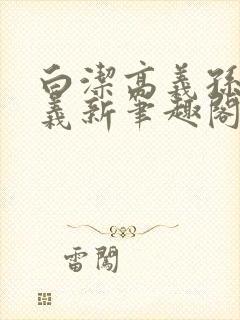 白潔高義孫
義新筆趣閣
雷闖